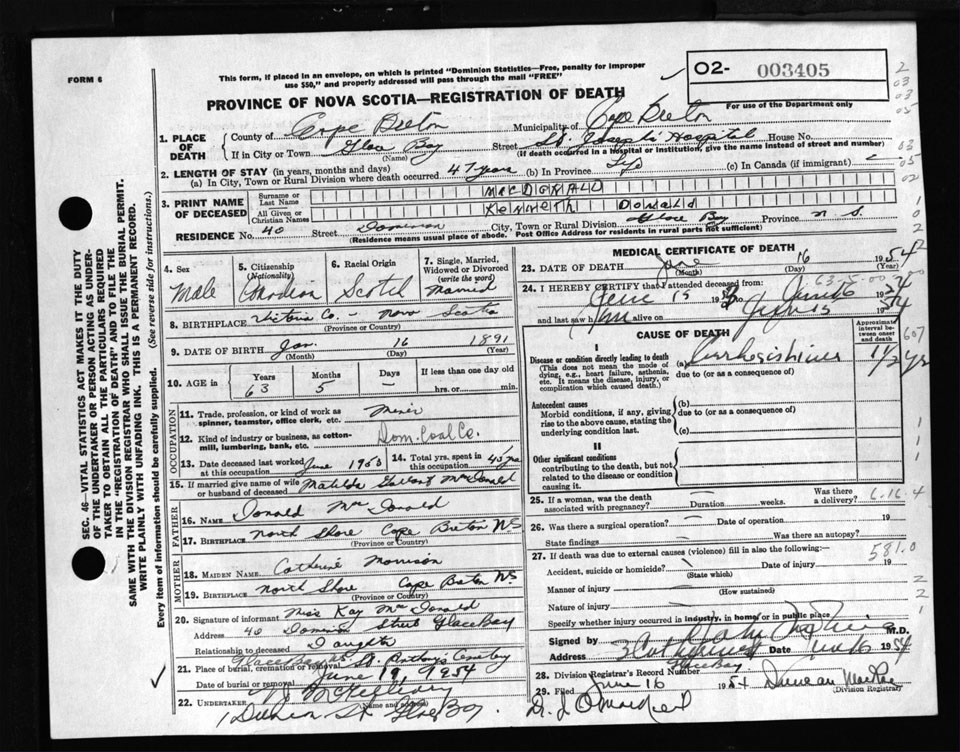 FORM 6
This form, if placed in an envelope, on which is printed "Dominion Statistics—Free, penalty for improper
use $50," and properly addressed will pass through the mail "FREE"
O2- 003405
PROVINCE OF NOVA SCOTIA—REGISTRATION OF DEATH
For use of the Department only
1. PLACE OF DEATH
County of Cape Breton Municipality of Cape Breton
If in City or Town Glace Bay Street St. Joseph's Hospital House No.
(Name) (If death occurred in a hospital or institution, give the name instead of street and number)
2. LENGTH OF STAY (in years, months and days)
(a) In City, Town or Rural Division where death occurred 47 years (b) In Province Life (c) In Canada (if immigrant)
3. PRINT NAME OF DECEASED
Surname or Last Name MacDONALD
All Given or Christian Names KENNETH DONALD
RESIDENCE No. 40 Street Dominion City, Town or Rural Division Glace Bay Province N S.
(Residence means usual place of abode. Post Office Address for residents in rural parts not sufficient)
4. Sex Male
5. Citizenship (Nationality) Canadian
6. Racial Origin Scotch
7. Single, Married, Widowed or Divorced (write the word) Married
8. BIRTHPLACE Victoria Co. — Nova Scotia
(Province or Country)
9. DATE OF BIRTH Jan. 16 1891
(Month) (Day) (Year)
10. AGE in Years 63 Months 5 Days — If less than one day old hrs. or min.
OCCUPATION
11. Trade, profession, or kind of work as spinner, teamster, office clerk, etc. Miner
12. Kind of industry or business, as cotton-mill, lumbering, bank, etc. Dom. Coal Co.
13. Date deceased last worked at this occupation June 1953
14. Total yrs. spent in this occupation 45 yrs
15. If married give name of wife or husband of deceased Matilda McDonald
FATHER
16. NAME Donald MacDonald
17. BIRTHPLACE North Shore Cape Breton NS
(Province or Country)
MOTHER
18. MAIDEN NAME Catherine Morrison
19. BIRTHPLACE North Shore Cape Breton NS
(Province or Country)
20. Signature of informant Miss Kay MacDonald
Address 40 Dominion Street Glace Bay
Relationship to deceased Daughter
21. Place of burial, cremation or removal Glace Bay NS St. Anthony's Cemetery
Date of burial or removal June 19, 1954
22. UNDERTAKER
(Name and address)
Glace Bay.
MEDICAL CERTIFICATE OF DEATH
23. DATE OF DEATH June 16 1954
(Month) (Day) (Year)
24. I HEREBY CERTIFY that I attended deceased from:
June 15 1954 June 16 1954
and last saw him alive on June 15 1954
CAUSE OF DEATH
Approximate interval between onset and death
I
Disease or condition directly leading to death
(This does not mean the mode of dying, e.g., heart failure, asthenia, etc. It means the disease, injury, or complication which caused death.)
(a) Cirrhosis liver 1 1/2 yrs
due to (or as a consequence of)
Antecedent causes
Morbid conditions, if any, giving rise to the above cause, stating the underlying condition last.
(b)
due to (or as a consequence of)
(c)
II
Other significant conditions
contributing to the death, but not related to the disease or condition causing it.
25. If a woman, was the death associated with pregnancy? Duration weeks. Was there a delivery?
6.16.4
26. Was there a surgical operation? — Date of operation 19
State findings — Was there an autopsy?
27. If death was due to external causes (violence) fill in also the following:—
581.0
Accident, suicide or homicide? Date of injury 19
(State which)
Manner of injury
(How sustained)
Nature of injury
Specify whether injury occurred in industry, in home or in public place
Signed by M.D.
Address Date June 16 1954
28. Division Registrar's Record Number
Glace Bay
29. Filed June 16 1954 Duncan MacRae
(Division Registrar)
SEC. 46—VITAL STATISTICS ACT MAKES IT THE DUTY
OF THE UNDERTAKER OR PERSON ACTING AS UNDER-
TAKER TO OBTAIN ALL THE PARTICULARS REQUIRED
IN THE "REGISTRATION OF DEATH" AND TO FILE THE
SAME WITH THE DIVISION REGISTRAR WHO SHALL ISSUE THE BURIAL PERMIT.
WRITE PLAINLY WITH UNFADING INK. THIS IS A PERMANENT RECORD.
Every item of information should be carefully supplied. (See reverse side for instructions.)